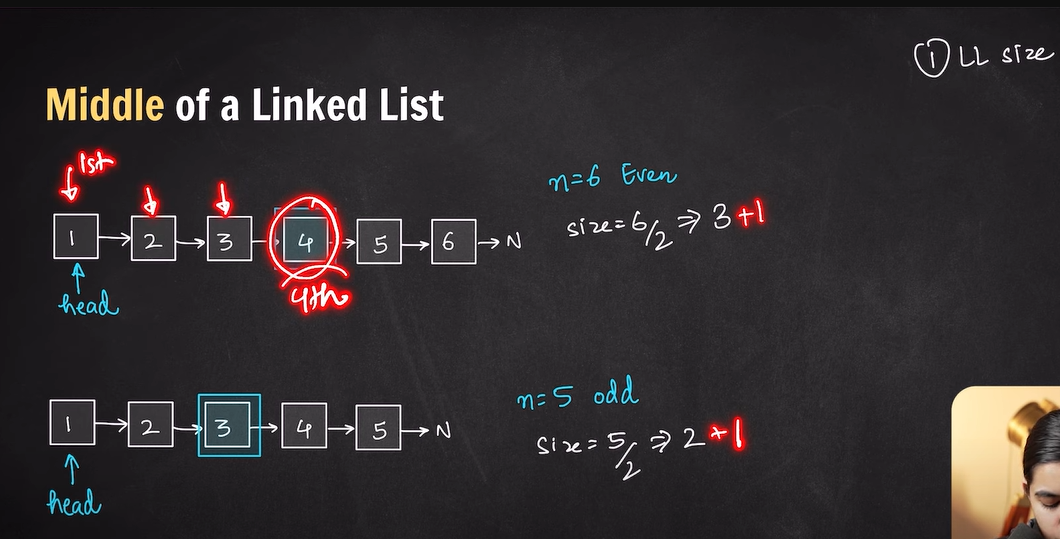 ① LL size
Middle of a Linked List
1st
1 2 3 4 5 6 N
head
4th
n=6 Even
size=6/2 ⇒ 3 +1
1 2 3 4 5 N
head
n=5 odd
size=5/2 ⇒ 2 +1